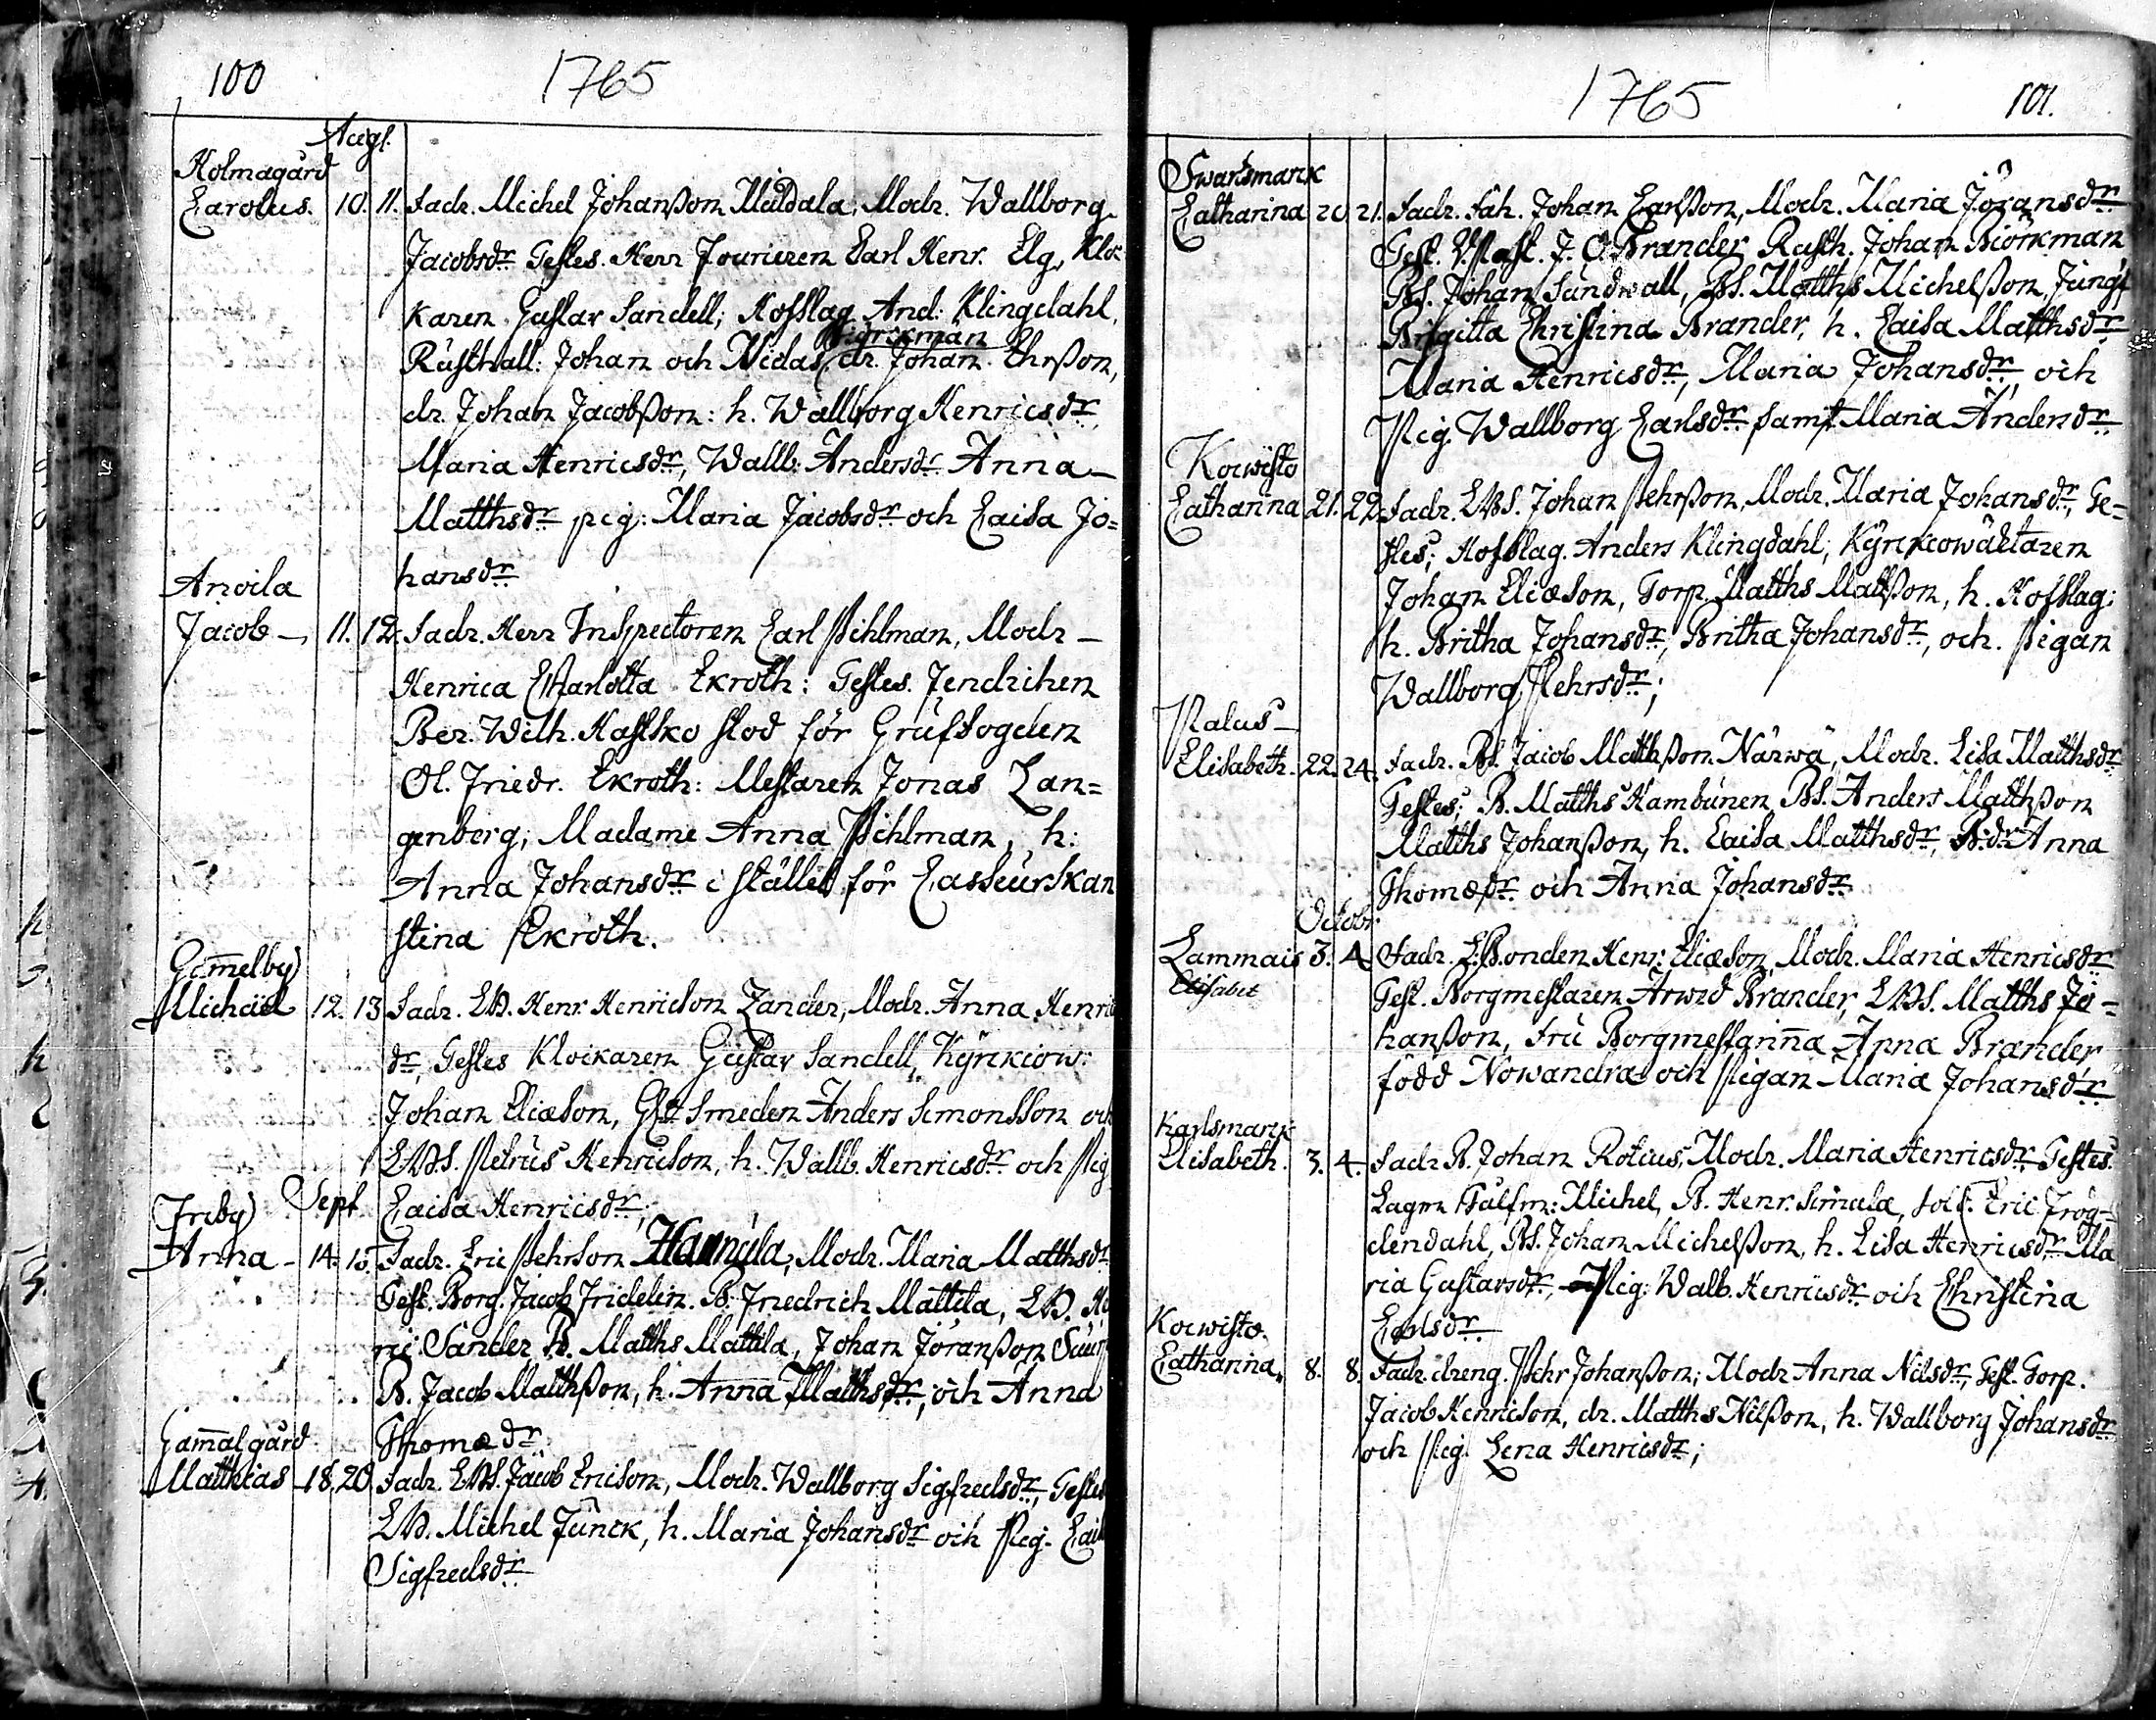 100
1765
Aug:
Holmagård
Carolus. 10. 11. Fadr. Michel Johanßon Middala, Modr. Wallborg
Jacobsdr. Testes. Herr Fourieren Carl Henr. Elg, Kloc
karen Gustav Sandell; Hofslag. And: Klingdahl,
Biörckman
Rusthåll: Johan och Nidas, dr. Johan Ehrßon,
dr. Johan Jacobßon: h. Wallborg Henricsdr,
Maria Henricsdr, Wallb: Andersdr Anna
Matthsdr pig: Maria Jacobsdr och Caisa Jo=
hansdr
Anvila
Jacob 11. 12. Fadr. Herr Inspectoren Carl Pihlman, Modr
Henrica Charlotta Ekroth: Testes. Fendrichen
Ber. Wilh. Hastsko stod för Grufsfogden
Ol. Friedr. Ekroth: Mestaren Jonas Lan=
genberg, Madame Anna Pihlman, h:
Anna Johansdr i stället för Casseurskan
stina Ekroth.
Gam̄elby
Michaël 12. 13 Fadr. LB. Henr. Henricson Zander, Modr. Anna Henric
dr, Testes Klockaren Gustav Sandell, Kyrckiow:
Johan Eliæson, Smeden Anders Simonsson och
LBS. Petrus Henricson, h. Wallb. Henricsdr och Pig
Caisa Henricsdr;
Sept
Freby
Anna 14. 15. Fadr. Eric Pehrson Hannula, Modr. Maria Matthsdr
Test. Borg. Jacob Fridelin. B. Friedrich Mattila, LB. He
nric Sander B. Matths Mattila, Johan Jöranßon
B. Jacob Matthßon, h. Anna Matthsdr; och Anna
Thomædr
Gam̄algård
Matthias 18. 20. Fadr. LBS. Jacob Ericson, Modr. Wallborg Sigfredsdr, Testes
LB. Michel Junck, h. Maria Johansdr och Pig. Cais
Sigfredsdr
1765
101.
Swartsmarck
Catharina 20 21. Fadr. Joh. Johan Carlßon, Modr. Maria Jöransdr
Test. V. Past. J. O. Brander, Rusth. Johan Biörkman
BS. Johan Sundwall, BS. Matths Michelßon, Jungf
Brigitta Christina Brander, h. Caisa Matthsdr
Maria Henricsdr, Maria Johansdr, och
Pig. Wallborg Carlsdr samt Maria Andersdr
Kouwisto
Catharina 21. 22. Fadr. LBS. Johan Pehrßon, Modr. Maria Johansdr, Te=
stes; Hofslag. Anders Klingdahl; Kyrckiowäktaren
Johan Eliæson, Torp. Matths Matßon, h. Hofslag:
h. Britha Johansdr, Britha Johansdr, och Pigan
Wallborg Pehrsdr;
Palus
Elisabeth. 22. 24. Fadr. BS. Jacob Matthßon Närwä, Modr. Lisa Matthsdr
Testes; B. Matths Kambunen, BS. Anders Matthßon
Matths Johanßon, h. Caisa Matthsdr, B:dr Anna
Thomædr och Anna Johansdr
Octobr.
Lammais 3. 4. Fadr. L:Bonden Henr: Eliæson, Modr. Maria Henricsdr
Elisabet Test. Borgmestaren Arwed Brander, LBS. Matths Jo=
hanßon, Fru Borgmestarin̄a Anna Brander
född Nowandra och Pigan Maria Johansdr
Karlsmarck
Elisabeth. 3. 4. Fadr. B. Johan Rotius, Modr. Maria Henricsdr, Testes
Lagm Michel, B. Henr. Simula, sold: Eric Frög=
dendahl, BS. Johan Michelßon, h. Lisa Henricsdr Ma
ria Gustavsdr, Pig: Walb. Henricsdr och Christina
Carlsdr
Kouwisto.
Catharina, 8. 8. Fadr. dreng. Pehr Johanßon; Modr Anna Nilsdr; Test. Torp.
Jacob Henricson, dr. Matths Nilßon, h. Wallborg Johansdr
och Pig. Lena Henricsdr;